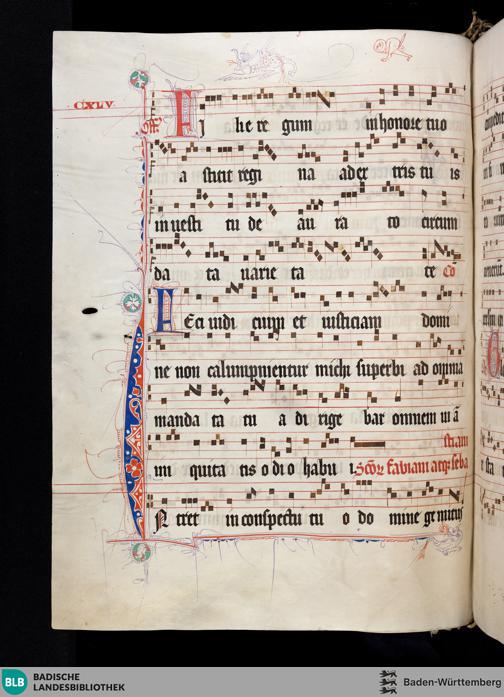 CXLV
Off. Fi li e re gum in honore tuo
a stitit regi na a dex tris tu is
in vesti tu de au ra to circum
da ta varie ta te Co
Feci iudi cium et iusticiam domi
ne non calumpnientur michi superbi ad omnia
manda ta tu a di rige bar omnem ui ā
ini quita tis o di o habu i. Scōꝝ fabiani atqꝫ seba
stiani
In tret in conspectu tu o do mine gemitus
BLB
BADISCHE
LANDESBIBLIOTHEK
Baden-Württemberg